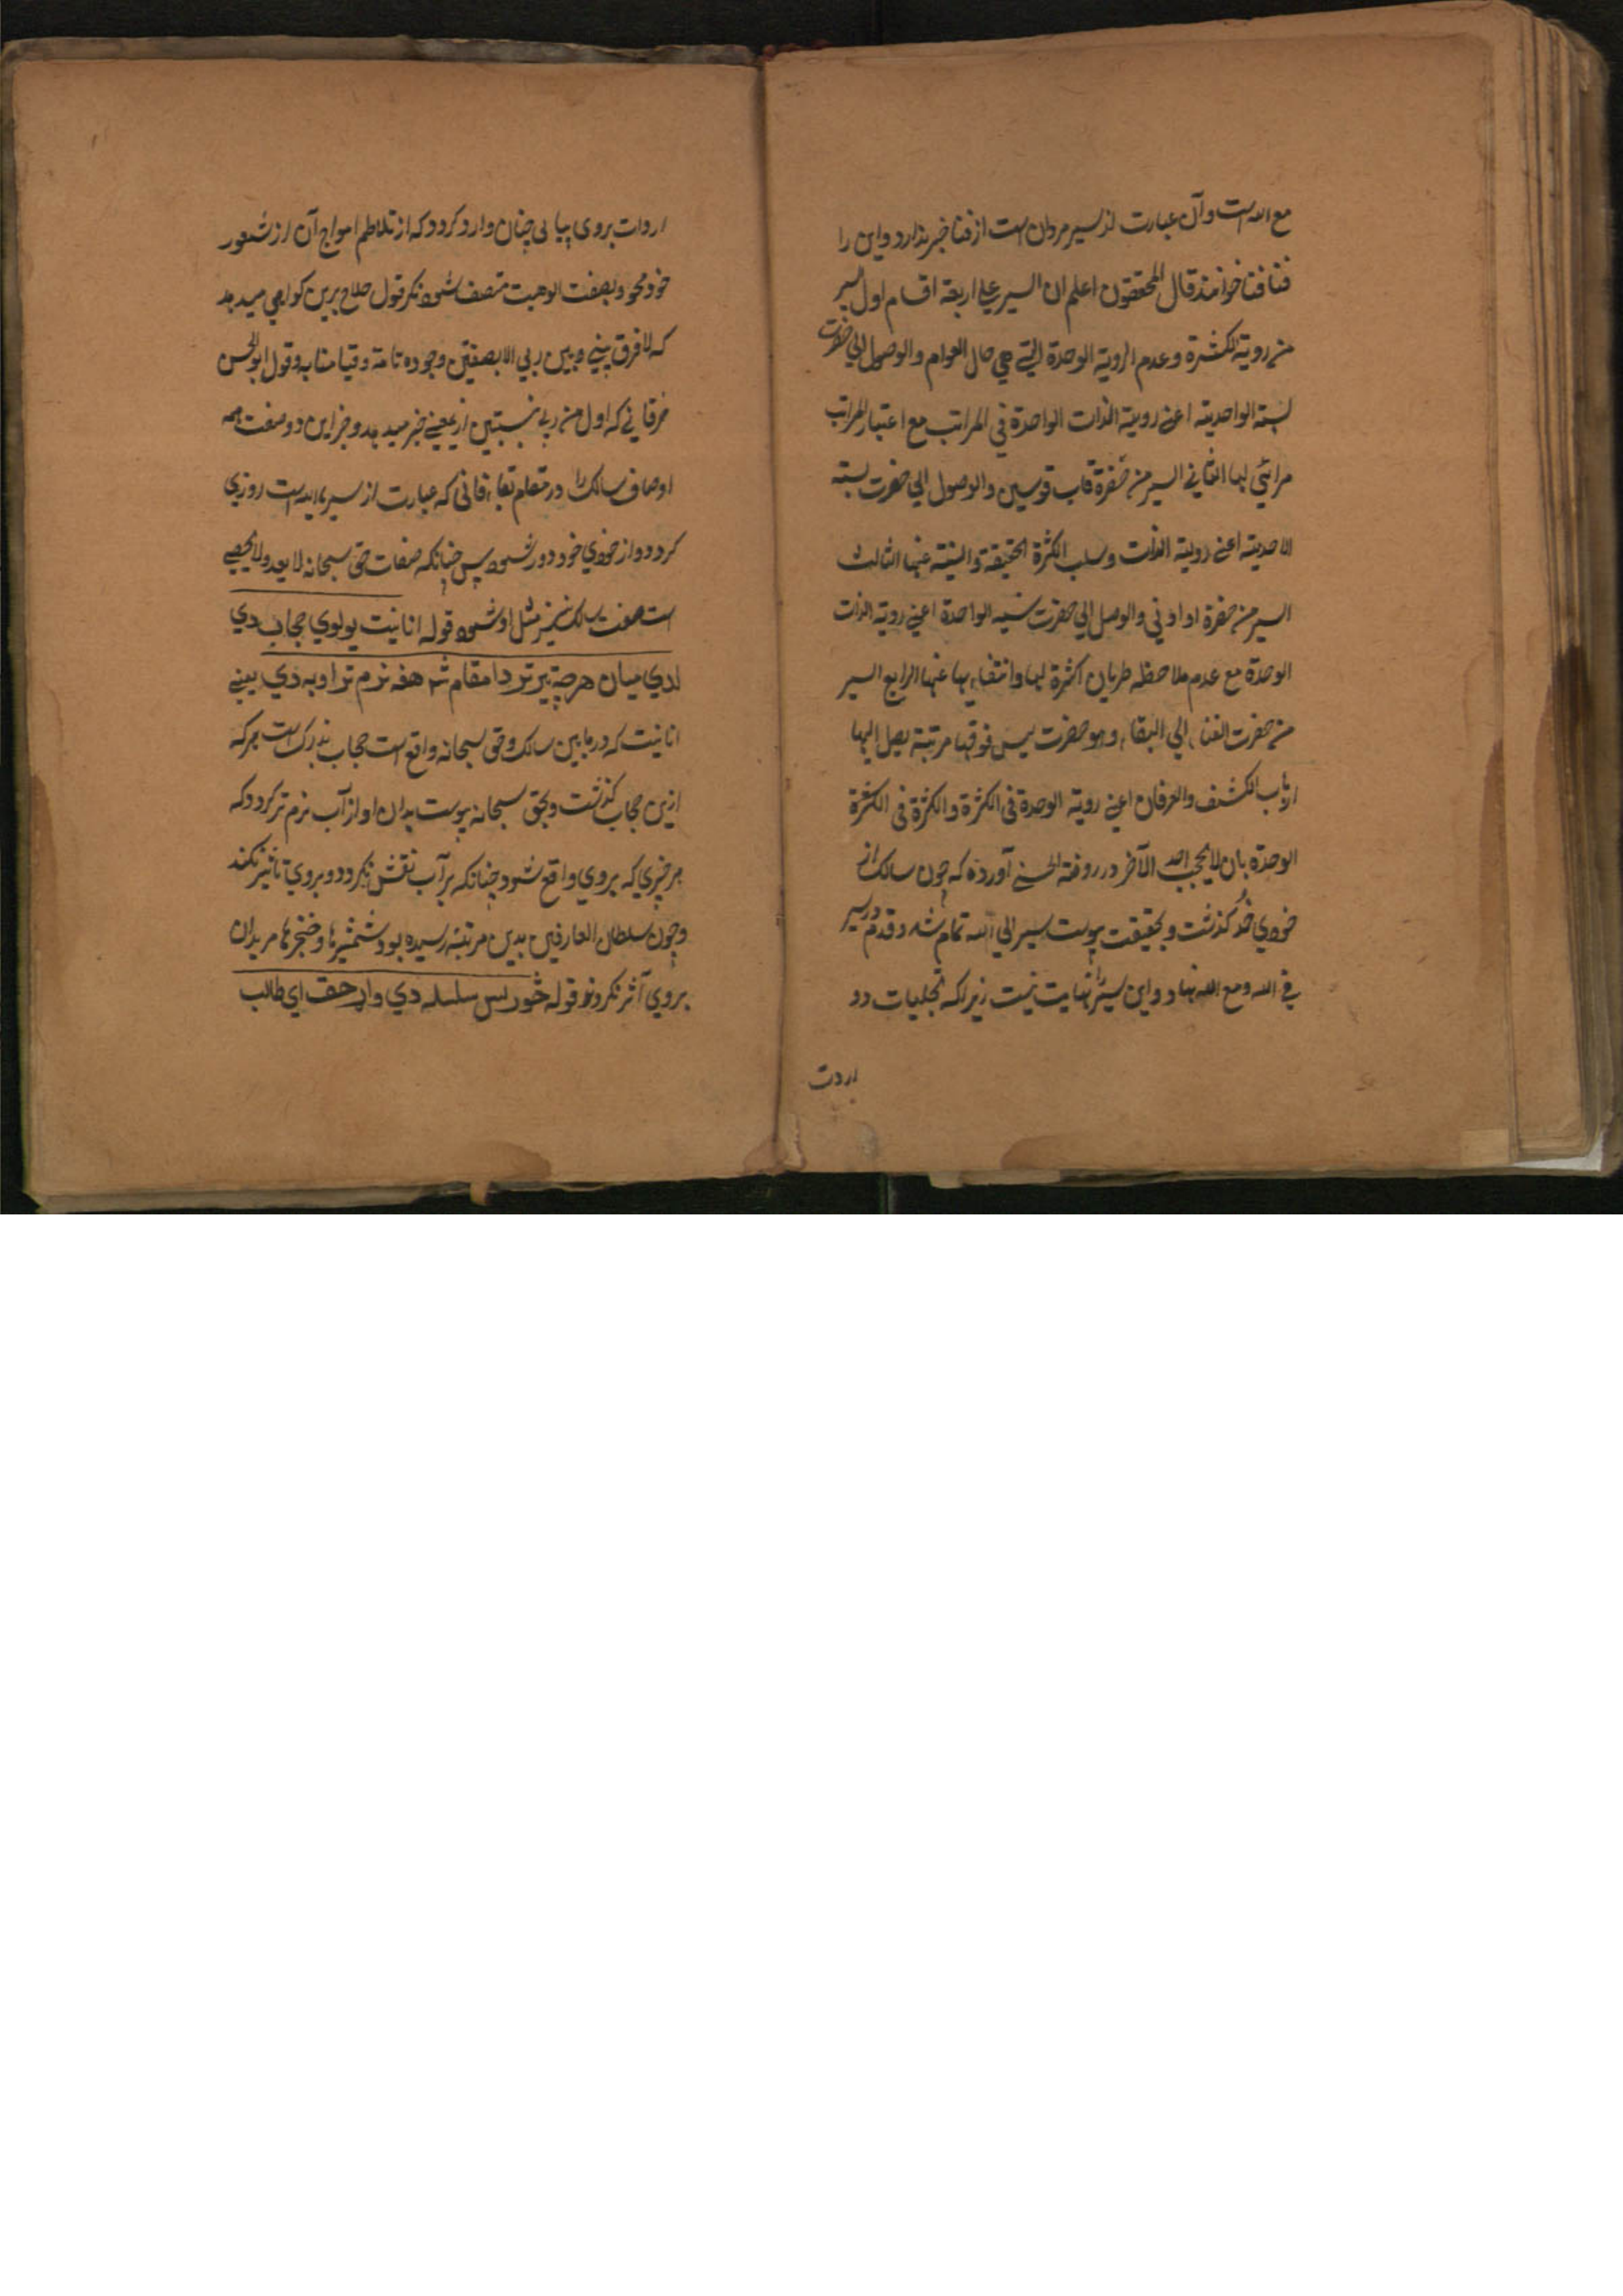 مع الله است وآن عبارت از سیر مردان است از فنا خبر ندارد واین را
فنا فنا خوانند قال المحققون اعلم ان السیر علی اربعة اقسام اول السیر
من رویة الکثرة وعدم الرویة الوحدة التی هی حال العوام والوصول الی حضرت
نسبته الواحدیته اعنی رویته الذات الواحدة فی المراتب مع اعتبار المراتب
لها الثانی السیر من حضرة قاب قوسین والوصول الی حضرت نسبته
الاحدیته اعنی رویته الذات وسلب الکثرة الحقیقة والنسبة عنها الثالث
السیر من حضرة او ادنی والوصل الی حضرت الواحدة اعنی رویة الذات
الوحدة مع عدم ملاحظه طریان الکثرة لها وانتفاءیها عنها الرابع السیر
من حضرت الفناء الی البقاء وهو حضرت لیس فوقها مرتبة یصل الیها
ارباب الکشف والعرفان اعنی رویة الوحدة فی الکثرة والکثرة فی الکثرة
الوحدة بان لا یحجب احد الآخر در روضة الحسنی آورده که چون سالک از
خودی خود گذشت وبحقیقت پیوست سیر الی الله تمام شد وقدم در سیر
فی الله ومع الله نهاد واین سیر را نهایت نیست زیراکه تجلیات دو
اردت
اردات بروی پیاپی چنان وارد گردد که از تلاطم امواج آن از شعور
خود محو وبصفت الوهیت متصف شود مگر قول حلاج برین گواهی میدهد
که لا فرق بینی وبین ربی الا بصفتین وجوده تامة وقیامنا به وقول ابوالحسن
خرقانی که اول من ربی بنسبتین ازیعنی خبر میدهد وجز این دو صفت همه
اوصاف سالک را در مقام بقا که عبارت از سیر است روزی
گردد واز خودی خود دور شود پس چنانکه صفات حق سبحانه لا یعد ولا یحصی
است صفت سالک نیز مثل او شود قوله انانیت یو لوی حجاب دی
لدی میان هر چه تیر تر دا مقام شه هغه نرم تر اوبه دی یعنی
انانیت که در مابین سالک وحق سبحانه واقع است حجاب بزرک است هرکه
ازین حجاب گذشت وبحق سبحانه پیوست بدان او از آب نرم تر گردد که
هر چیزی که بروی واقع شود چنانکه بر آب نقش نگردد وبروی تاثیر نکند
وچون سلطان العارفین بدین مرتبه رسیده بود شمشیرها وخنجرها مریدان
بروی آثر نکردند قوله سلسله دی واړه حق ای طالب